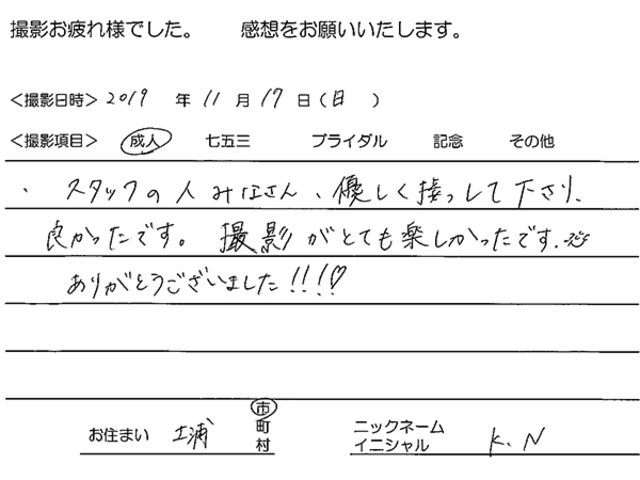 撮影お疲れ様でした。 感想をお願いいたします。
<撮影日時> 2019 年 11 月 17 日(日 )
<撮影項目> 成人 七五三 ブライダル 記念 その他
・スタッフの人みなさん、優しく接っして下さり、
良かったです。 撮影がとても楽しかったです。
ありがとうございました!!!♡
お住まい 土浦 市 町 村
ニックネーム イニシャル K.N